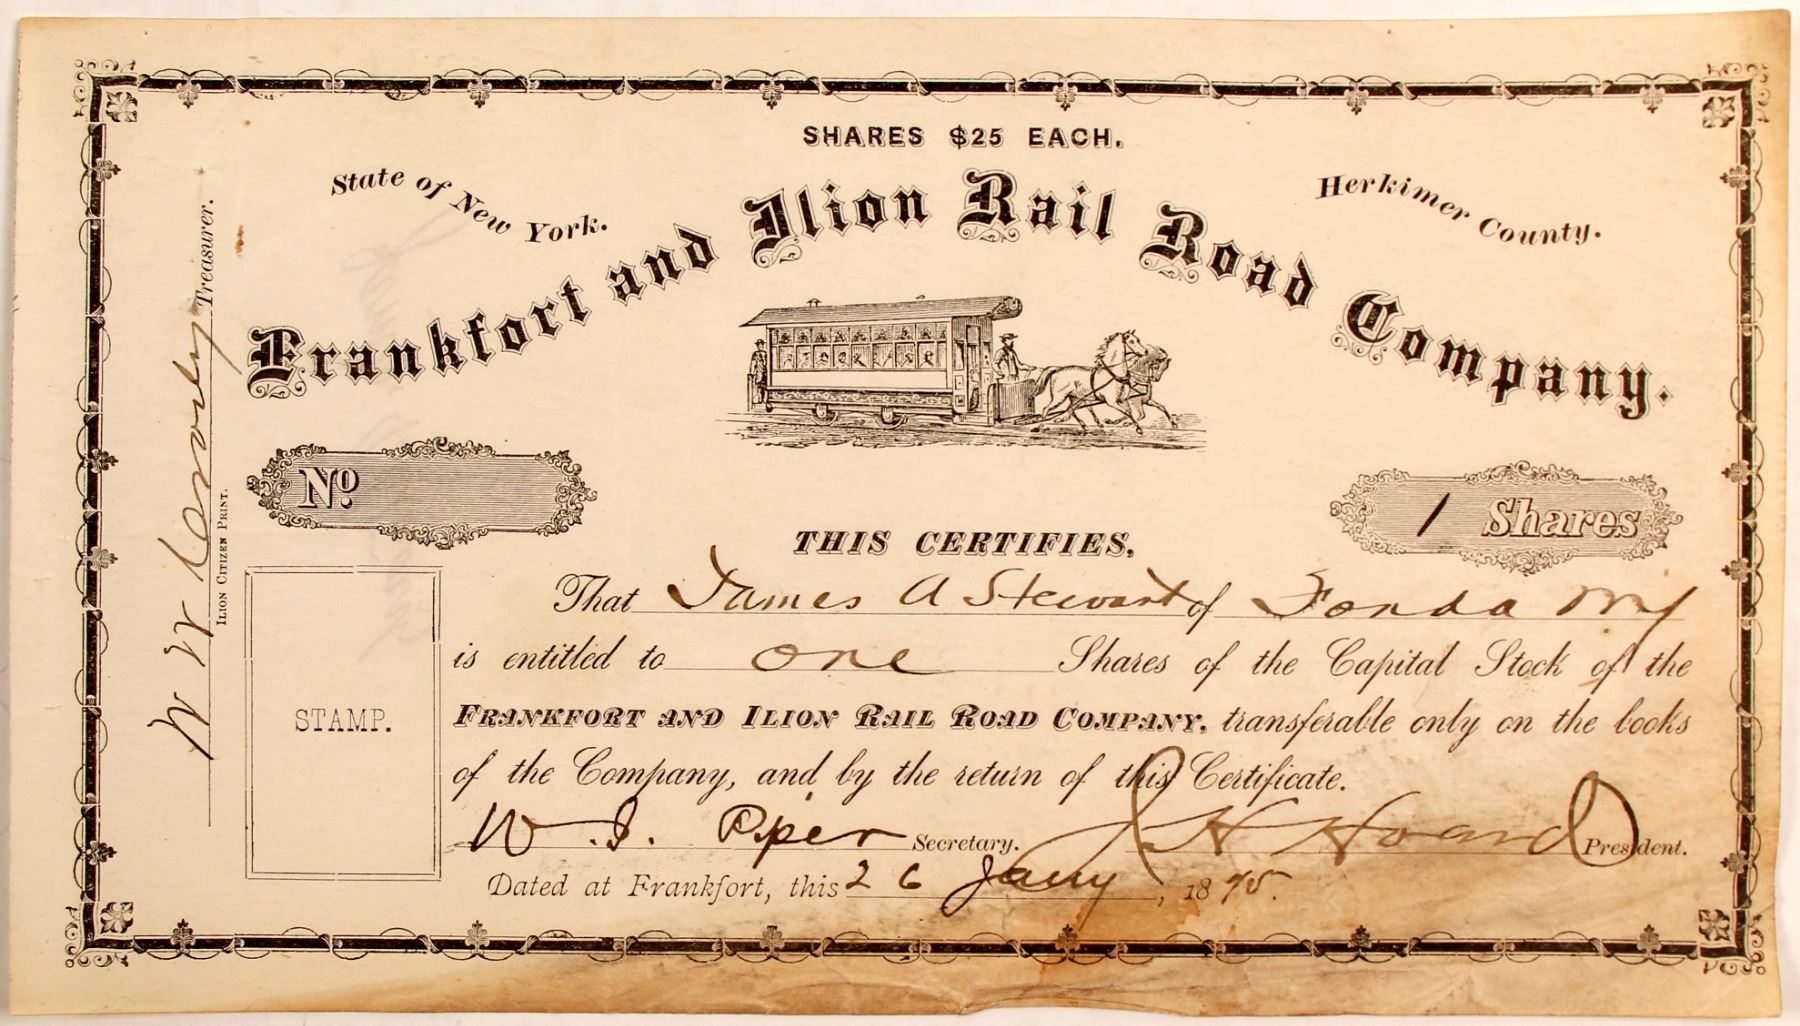 SHARES $25 EACH.
State of New York.
Herkimer County.
Frankfort and Ilion Rail Road Company.
No.
1 Shares
THIS CERTIFIES,
That James A Stewart of Fonda NY
is entitled to one Shares of the Capital Stock of the
FRANKFORT AND ILION RAIL ROAD COMPANY, transferable only on the books
of the Company, and by the return of this Certificate.
W. I. Piper Secretary. J H Hoard President.
Dated at Frankfort, this 26 Jany, 1875.
STAMP.
W W Treasurer.
ILION CITIZEN PRINT.